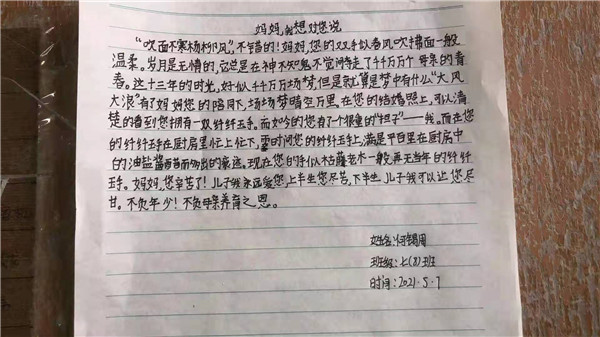 妈妈,我想对您说
“吹面不寒杨柳风”,不错的!妈妈,您的双手似春风吹拂面一般
温柔。岁月是无情的,它总是在神不知鬼不觉间带走了千千万万个母亲的青
春。这十三年的时光,好似千千万万场梦,但是就算是梦中有什么“大风
大浪”有了妈妈您的陪同下,场场梦晴空万里,在您的结婚照上,可以清
楚的看到您拥有一双纤纤玉手。而如今的您有了个很重的“担子”——我。而在您
的纤纤玉手在厨房里忙上忙下,霎时间您的纤纤玉手上,满是平日里在厨房中
的油盐酱醋而的痕迹。现在,您的手似枯藤老木一般,再无当年的纤纤
玉手。妈妈,您辛苦了!儿子我永远爱您,上半生您尽苦,下半生儿子我可以让您尽
甘。不负年少!不负母亲养育之恩。
姓名:何锡周
班级:七(8)班
时间:2021.5.7